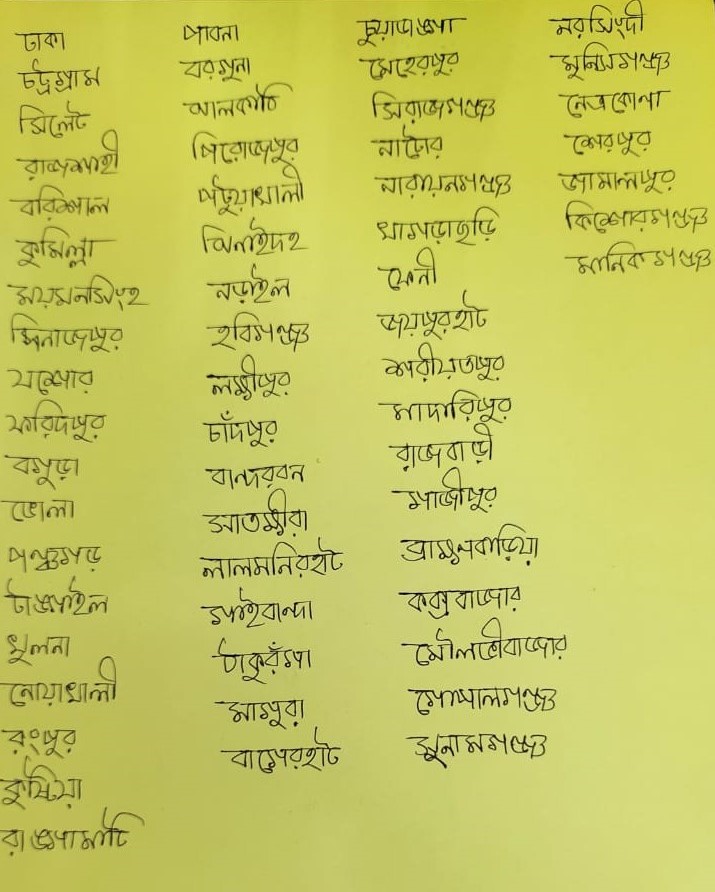 ঢাকা
চট্রগ্রাম
সিলেট
রাজশাহী
বরিশাল
কুমিল্লা
ময়মনসিংহ
দিনাজপুর
যশোর
ফরিদপুর
বগুড়া
ভোলা
পঞ্চগড়
টাঙ্গাইল
খুলনা
নোয়াখালী
রংপুর
কুষ্টিয়া
রাঙ্গামাটি
পাবনা
বরগুনা
ঝালকাঠি
পিরোজপুর
পটুয়াখালী
ঝিনাইদহ
নড়াইল
হবিগঞ্জ
লক্ষ্মীপুর
চাঁদপুর
বান্দরবন
সাতক্ষীরা
লালমনিরহাট
গাইবান্দা
ঠাকুরগাঁ
মাগুরা
বাগেরহাট
চুয়াডাঙ্গা
মেহেরপুর
সিরাজগঞ্জ
নাটোর
নারায়নগঞ্জ
খাগড়াছড়ি
ফেনী
জয়পুরহাট
শরীয়তপুর
মাদারিপুর
রাজবাড়ী
গাজীপুর
ব্রাহ্মণবাড়িয়া
কক্সবাজার
মৌলভীবাজার
গোপালগঞ্জ
সুনামগঞ্জ
নরসিংদী
মুন্সিগঞ্জ
নেত্রকোণা
শেরপুর
জামালপুর
কিশোরগঞ্জ
মানিকগঞ্জ